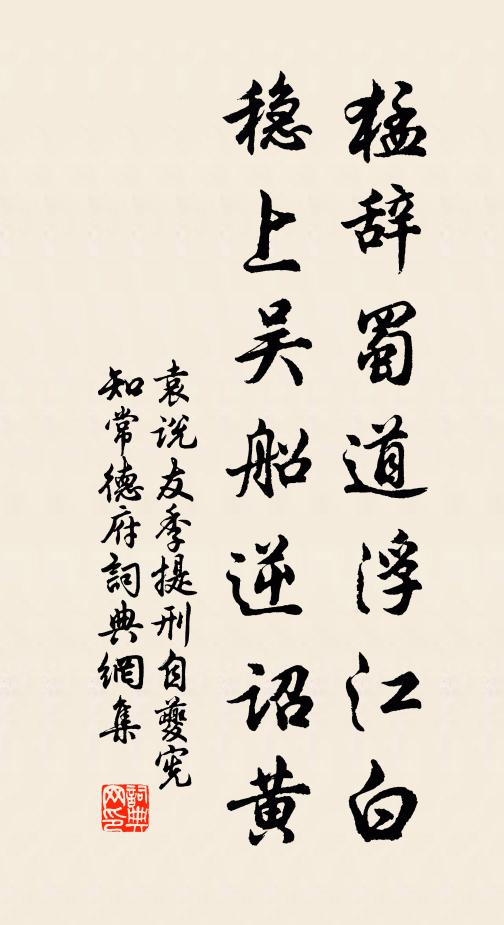 猛辞蜀道浮江白
稳上吴船逆诏黄
袁说友季提刑自夔宪
知常德府詞典網集
詞典网印